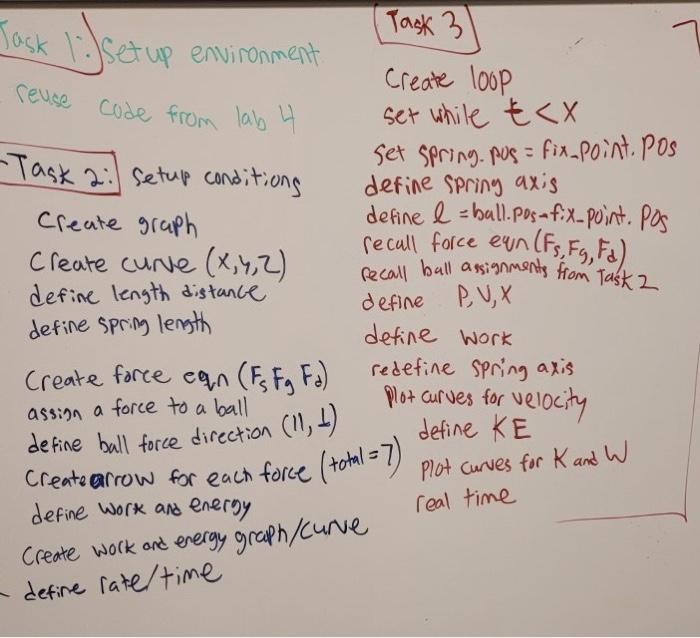 Task 1: Setup environment
reuse code from lab 4
Task 2: Setup conditions
Create graph
Create curve (x,y,z)
define length distance
define spring length
Create force eqn (Fs Fg Fd)
assign a force to a ball
define ball force direction (||,⊥)
Create arrow for each force (total=7)
define work and energy
Create work and energy graph/curve
- define rate/time
Task 3
Create loop
set while t<x
Set spring.pos = fix_point.pos
define spring axis
define l = ball.pos - fix_point.pos
recall force eqn (Fs, Fg, Fd)
recall ball assignments from Task 2
define P, V, X
define work
redefine spring axis
Plot curves for velocity
define KE
Plot curves for K and W
real time